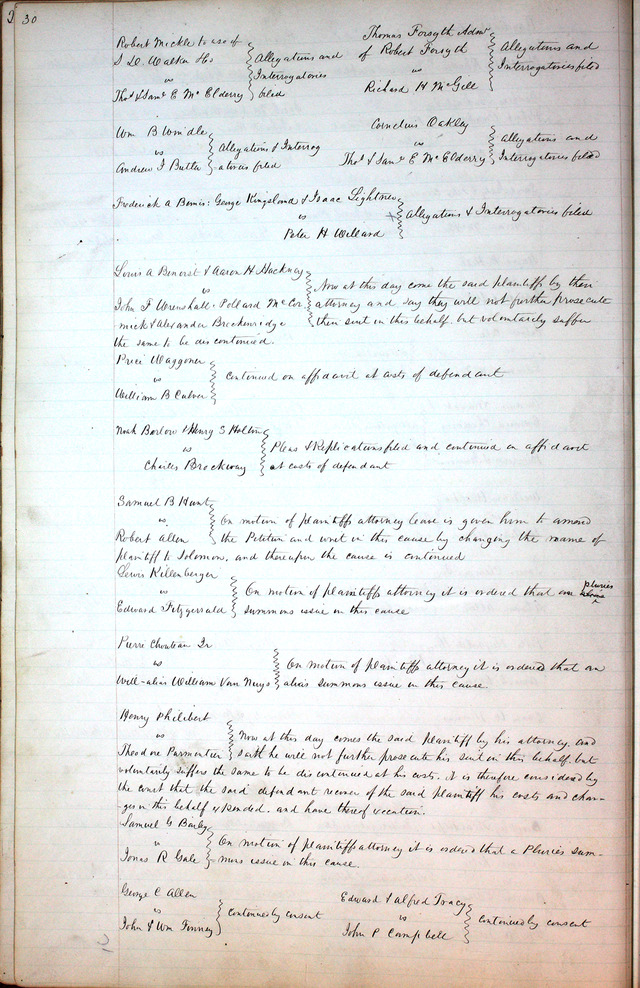 30
Robert Mickle to use of
S D. Walker & Co
vs
Thos & Saml E McElderry
Allegations and
Interrogatories
filed
Thomas Forsyth Admr
of Robert Forsyth
vs
Richard H McGill
Allegations and
Interrogatories filed
Wm B Windle
vs
Andrew J Butler
Allegations & Interrog
atories filed
Cornelius Oakley
vs
Thos & Saml E McElderry
Allegations and
Interrogatories filed
Frederick A Bemis: George Kingsland & Isaac Lightner
vs
Peter H Willard
Allegations & Interrogatories filed
Louis A Benoist & Aaron H Hackney
vs
John F Wrenshall, Pollard McCor
mick & Alexander Breckenridge
Now at this day come the said plaintiffs by their
attorney and say they will not further prosecute
their suit in this behalf. but voluntarily suffer
the same to be discontinued.
Price Waggoner
vs
William B Culver
Continued on affidavit at costs of defendant
Noah Barlow & Henry S Holton
vs
Charles Brockway
Pleas & Replications filed and continued on affidavit
at costs of defendant
Samuel B Hunt
vs.
Robert Allen
On motion of plaintiffs attorney leave is given him to amend
the Petition and writ in this cause by changing the name of
plaintiff to Solomon. and thereupon the cause is continued
Lewis Killenberger
vs
Edward Fitzgerrald
On motion of plaintiffs attorney it is ordered that an pluries
summons issue in this cause
Pierre Chouteau Jr
vs
Will-alias William Van Nuys
On motion of plaintiffs attorney it is ordered that an
alias summons issue in this cause
Henry Philibert
vs
Theodore Parmentier
Now at this day comes the said plaintiff by his attorney. and
saith he will not further prosecute his suit in this behalf. but
voluntarily suffers the same to be discontinued at his costs. it is therefore considered by
the court that the said defendant recover of the said plaintiff his costs and char-
ges in this behalf expended. and have thereof execution.
Samuel G Bailey
vs
Jonas R Gale
On motion of plaintiffs attorney it is ordered that a Pluries sum-
mons issue in this cause.
George C Allen
vs
John & Wm Finney
Continued by consent
Edward & Alfred Tracy
vs
John P Campbell
Continued by consent